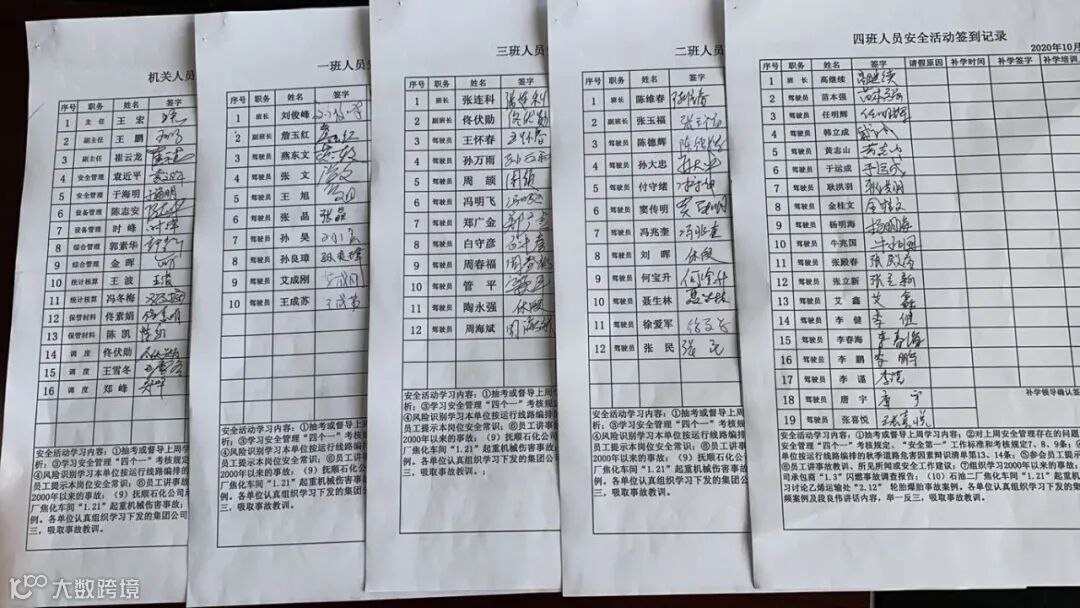 机关人员
序号 职务 姓名 签字
1 主任 王宏
2 副主任 王鹏
3 副主任 崔云龙
4 安全管理 袁近平
5 安全管理 于海明
6 设备管理 陈志安
7 设备管理 时峰
8 综合管理 郭素华
9 综合管理 金晖
10 统计核算 王波
11 统计核算 冯冬梅
12 保管材料 佟素娟
13 保管材料 陈凯
14 调度 佟伏勋
15 调度 王雪冬
16 调度 郑峰
安全活动学习内容：①抽考或督导上周
析；③学习安全管理“四个一”考核
④风险识别学习本单位按运行线路编排
员工提示本岗位安全常识；⑥员工讲
2000年以来的事故；（9）抚顺石化公司
厂焦化车间“1.21”起重机械伤害事故
例。各单位认真组织学习下发的集团公司
三，吸取事故教训。
一班人员
序号 职务 姓名 签字
1 班长 刘俊峰
2 副班长 詹玉红
3 驾驶员 燕东文
4 驾驶员 张文
5 驾驶员 王旭
6 驾驶员 张晶 张晶
7 驾驶员 孙昊
8 驾驶员 孙良璋
9 驾驶员 艾成刚
10 驾驶员 王成苏
安全活动学习内容：①抽考或督导上周
析；③学习安全管理“四个一”考核规
④风险识别学习本单位按运行线路编排的
员工提示本岗位安全常识；⑥员工讲事
2000年以来的事故；（9）抚顺石化公司
厂焦化车间“1.21”起重机械伤害事故
例。各单位认真组织学习下发的集团公司
三，吸取事故教训。
三班人员
序号 职务 姓名 签字
1 班长 张连科
2 副班长 佟伏勋 佟伏勋
3 驾驶员 王怀春 王怀春
4 驾驶员 孙万雨
5 驾驶员 周颉
6 驾驶员 冯明飞
7 驾驶员 郑广金
8 驾驶员 白守彦
9 驾驶员 周春福
10 驾驶员 管平
11 驾驶员 陶永强 休假
12 驾驶员 周海斌
安全活动学习内容：①抽考或督导上周
析；③学习安全管理“四个一”考核规
④风险识别学习本单位按运行线路编排
员工提示本岗位安全常识；⑥员工讲
2000年以来的事故；（9）抚顺石化公司
厂焦化车间“1.21”起重机械伤害事故
例。各单位认真组织学习下发的集团公
三，吸取事故教训。
二班人员
序号 职务 姓名 签字
1 班长 陈维春
2 驾驶员 张玉福
3 驾驶员 陈德辉
4 驾驶员 孙大忠
5 驾驶员 付守绪
6 驾驶员 窦传明
7 驾驶员 冯兆奎
8 驾驶员 刘晖 休假
9 驾驶员 何宝升
10 驾驶员 聂生林
11 驾驶员 徐爱军
12 驾驶员 张民 张民
安全活动学习内容：①抽考或督导上周
析；③学习安全管理“四个一”考核规
④风险识别学习本单位按运行线路编排
员工提示本岗位安全常识；⑥员工讲
2000年以来的事故；（9）抚顺石化公
厂焦化车间“1.21”起重机械伤害事故
例。各单位认真组织学习下发的集团公
三，吸取事故教训。
四班人员安全活动签到记录
2020年10月
序号 职务 姓名 签字 请假原因 补学时间 补学签字 补学培训人
1 班长 高继续 高继续
2 驾驶员 苗本强
3 驾驶员 任明辉 任明辉
4 驾驶员 韩立成
5 驾驶员 黄志山 黄志山
6 驾驶员 于运成 于运成
7 驾驶员 耿洪羽
8 驾驶员 金桂文 金桂文
9 驾驶员 杨明海 杨明海
10 驾驶员 牛兆国
11 驾驶员 张殿春
12 驾驶员 张立新 张立新
13 驾驶员 艾鑫 艾鑫
14 驾驶员 李健 李健
15 驾驶员 李春海 李春海
16 驾驶员 李鹏 李鹏
17 驾驶员 李谨
18 驾驶员 唐宇 唐宇
19 驾驶员 张喜悦 张喜悦
补学领导确认签
安全活动学习内容：①抽考或督导上周学习内容；②对上周安全管理存在的问题
安全管理“四个一”考核规定、“安全第一”工作标准和考核规定7、8、9条；
单位按运行线路编排的秋季道路危害因素辩识清单第13、14条；⑤参会员工提示
⑥员工讲事故教训、所见所闻或安全工作建议；⑦组织学习2000年以来的事故
司承包商“1.3”闪燃事故调查报告；（10）石油二厂焦化车间“1.21”起重机
习讨论乙烯运输处“2.12” 轮胎爆胎事故案例。各单位认真组织学习下发的集
频案例及段良伟讲话内容，举一反三，吸取事故教训。
大数跨境